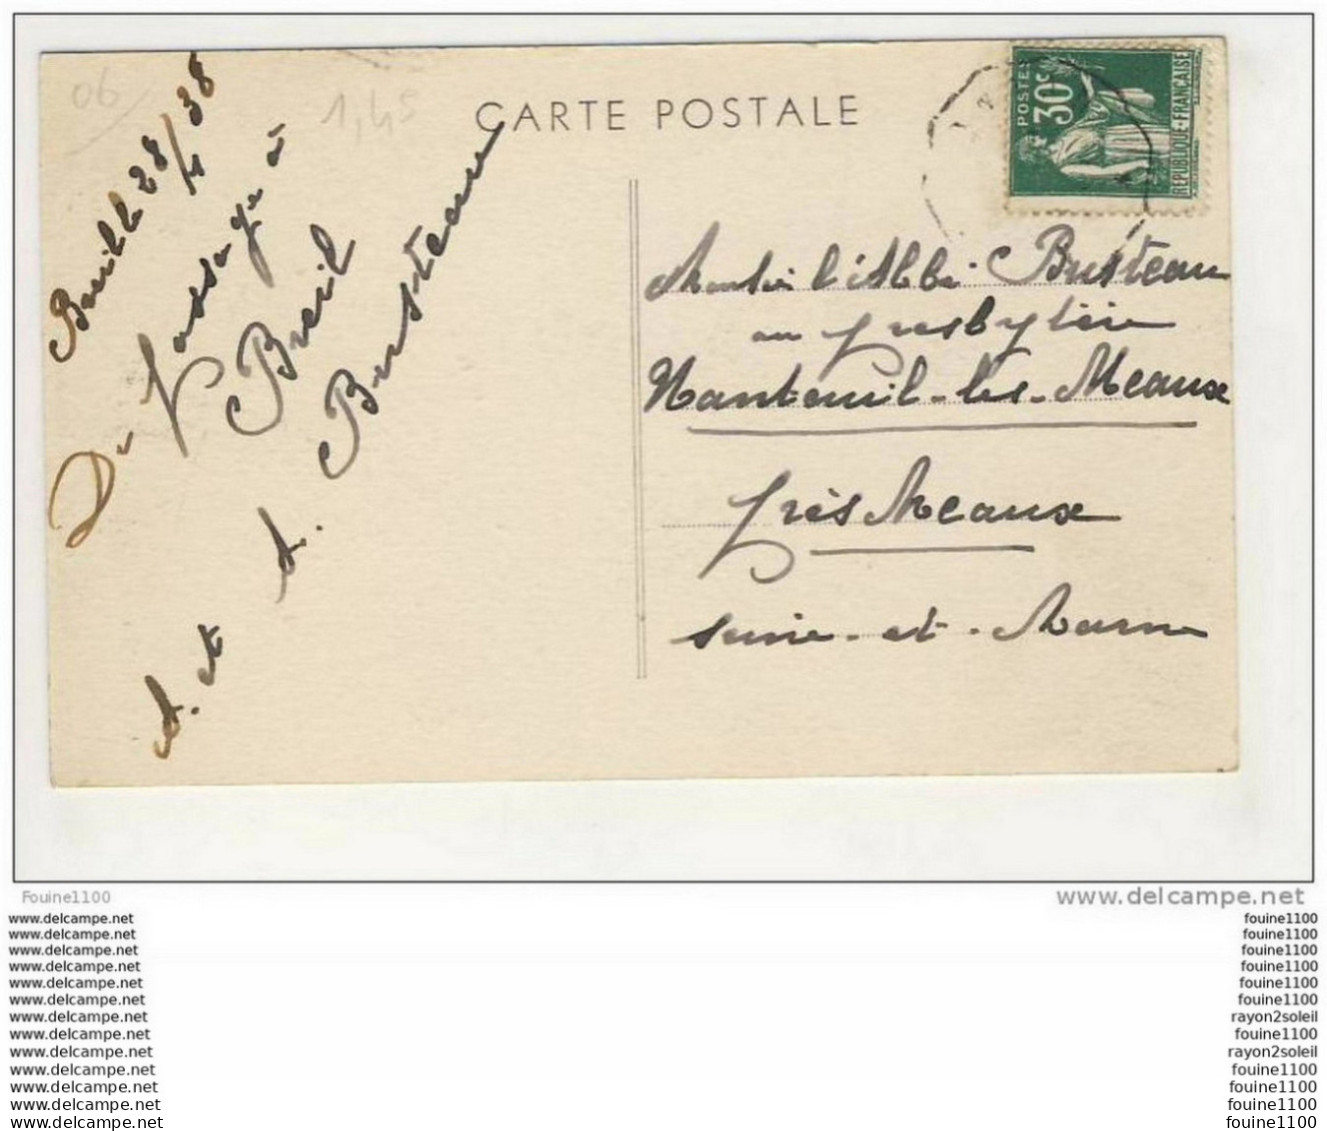 06
1,45
CARTE POSTALE
POSTES
30c
REPUBLIQUE-FRANÇAISE
Breil le 28/4/38
De Passage à
Breil
A. et A. Busteau
Monsieur l'Abbé Busteau
au presbytère
Nanteuil-les-Meaux
près Meaux
Seine-et-Marne
Fouine1100
www.delcampe.net
www.delcampe.net fouine1100
www.delcampe.net fouine1100
www.delcampe.net fouine1100
www.delcampe.net fouine1100
www.delcampe.net fouine1100
www.delcampe.net fouine1100
www.delcampe.net rayon2soleil
www.delcampe.net fouine1100
www.delcampe.net rayon2soleil
www.delcampe.net fouine1100
www.delcampe.net fouine1100
www.delcampe.net fouine1100
www.delcampe.net fouine1100